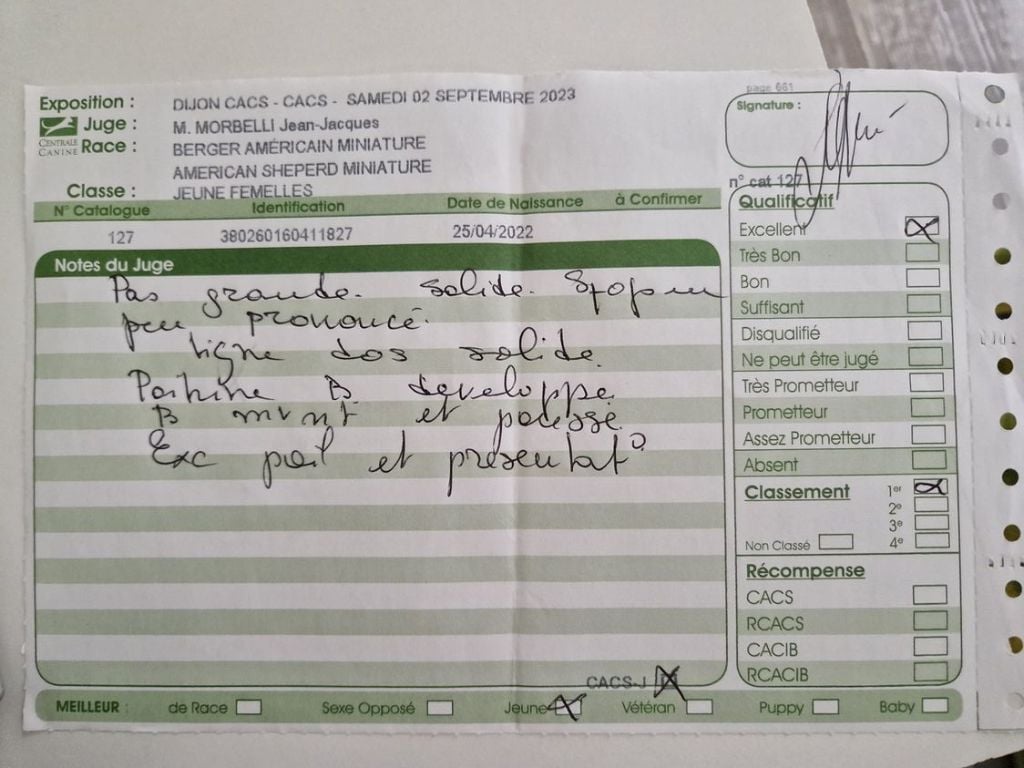 page 661
Exposition : DIJON CACS - CACS - SAMEDI 02 SEPTEMBRE 2023
Signature :
Juge : M. MORBELLI Jean-Jacques
CENTRALE CANINE
Race : BERGER AMÉRICAIN MINIATURE
AMERICAN SHEPERD MINIATURE
Classe : JEUNE FEMELLES
n° cat 127
N° Catalogue Identification Date de Naissance à Confirmer
127 380260160411827 25/04/2022
Notes du Juge
Pas grande. Solide.
peu prononcé.
Ligne dos solide.
Poitrine B developpe
B mvnt et
Exc poil et presentat°
Qualificatif
Excellent
Très Bon
Bon
Suffisant
Disqualifié
Ne peut être jugé
Très Prometteur
Prometteur
Assez Prometteur
Absent
Classement 1er
2e
3e
Non Classé 4e
Récompense
CACS
RCACS
CACIB
RCACIB
CACS-J
MEILLEUR : de Race Sexe Opposé Jeune Vétéran Puppy Baby